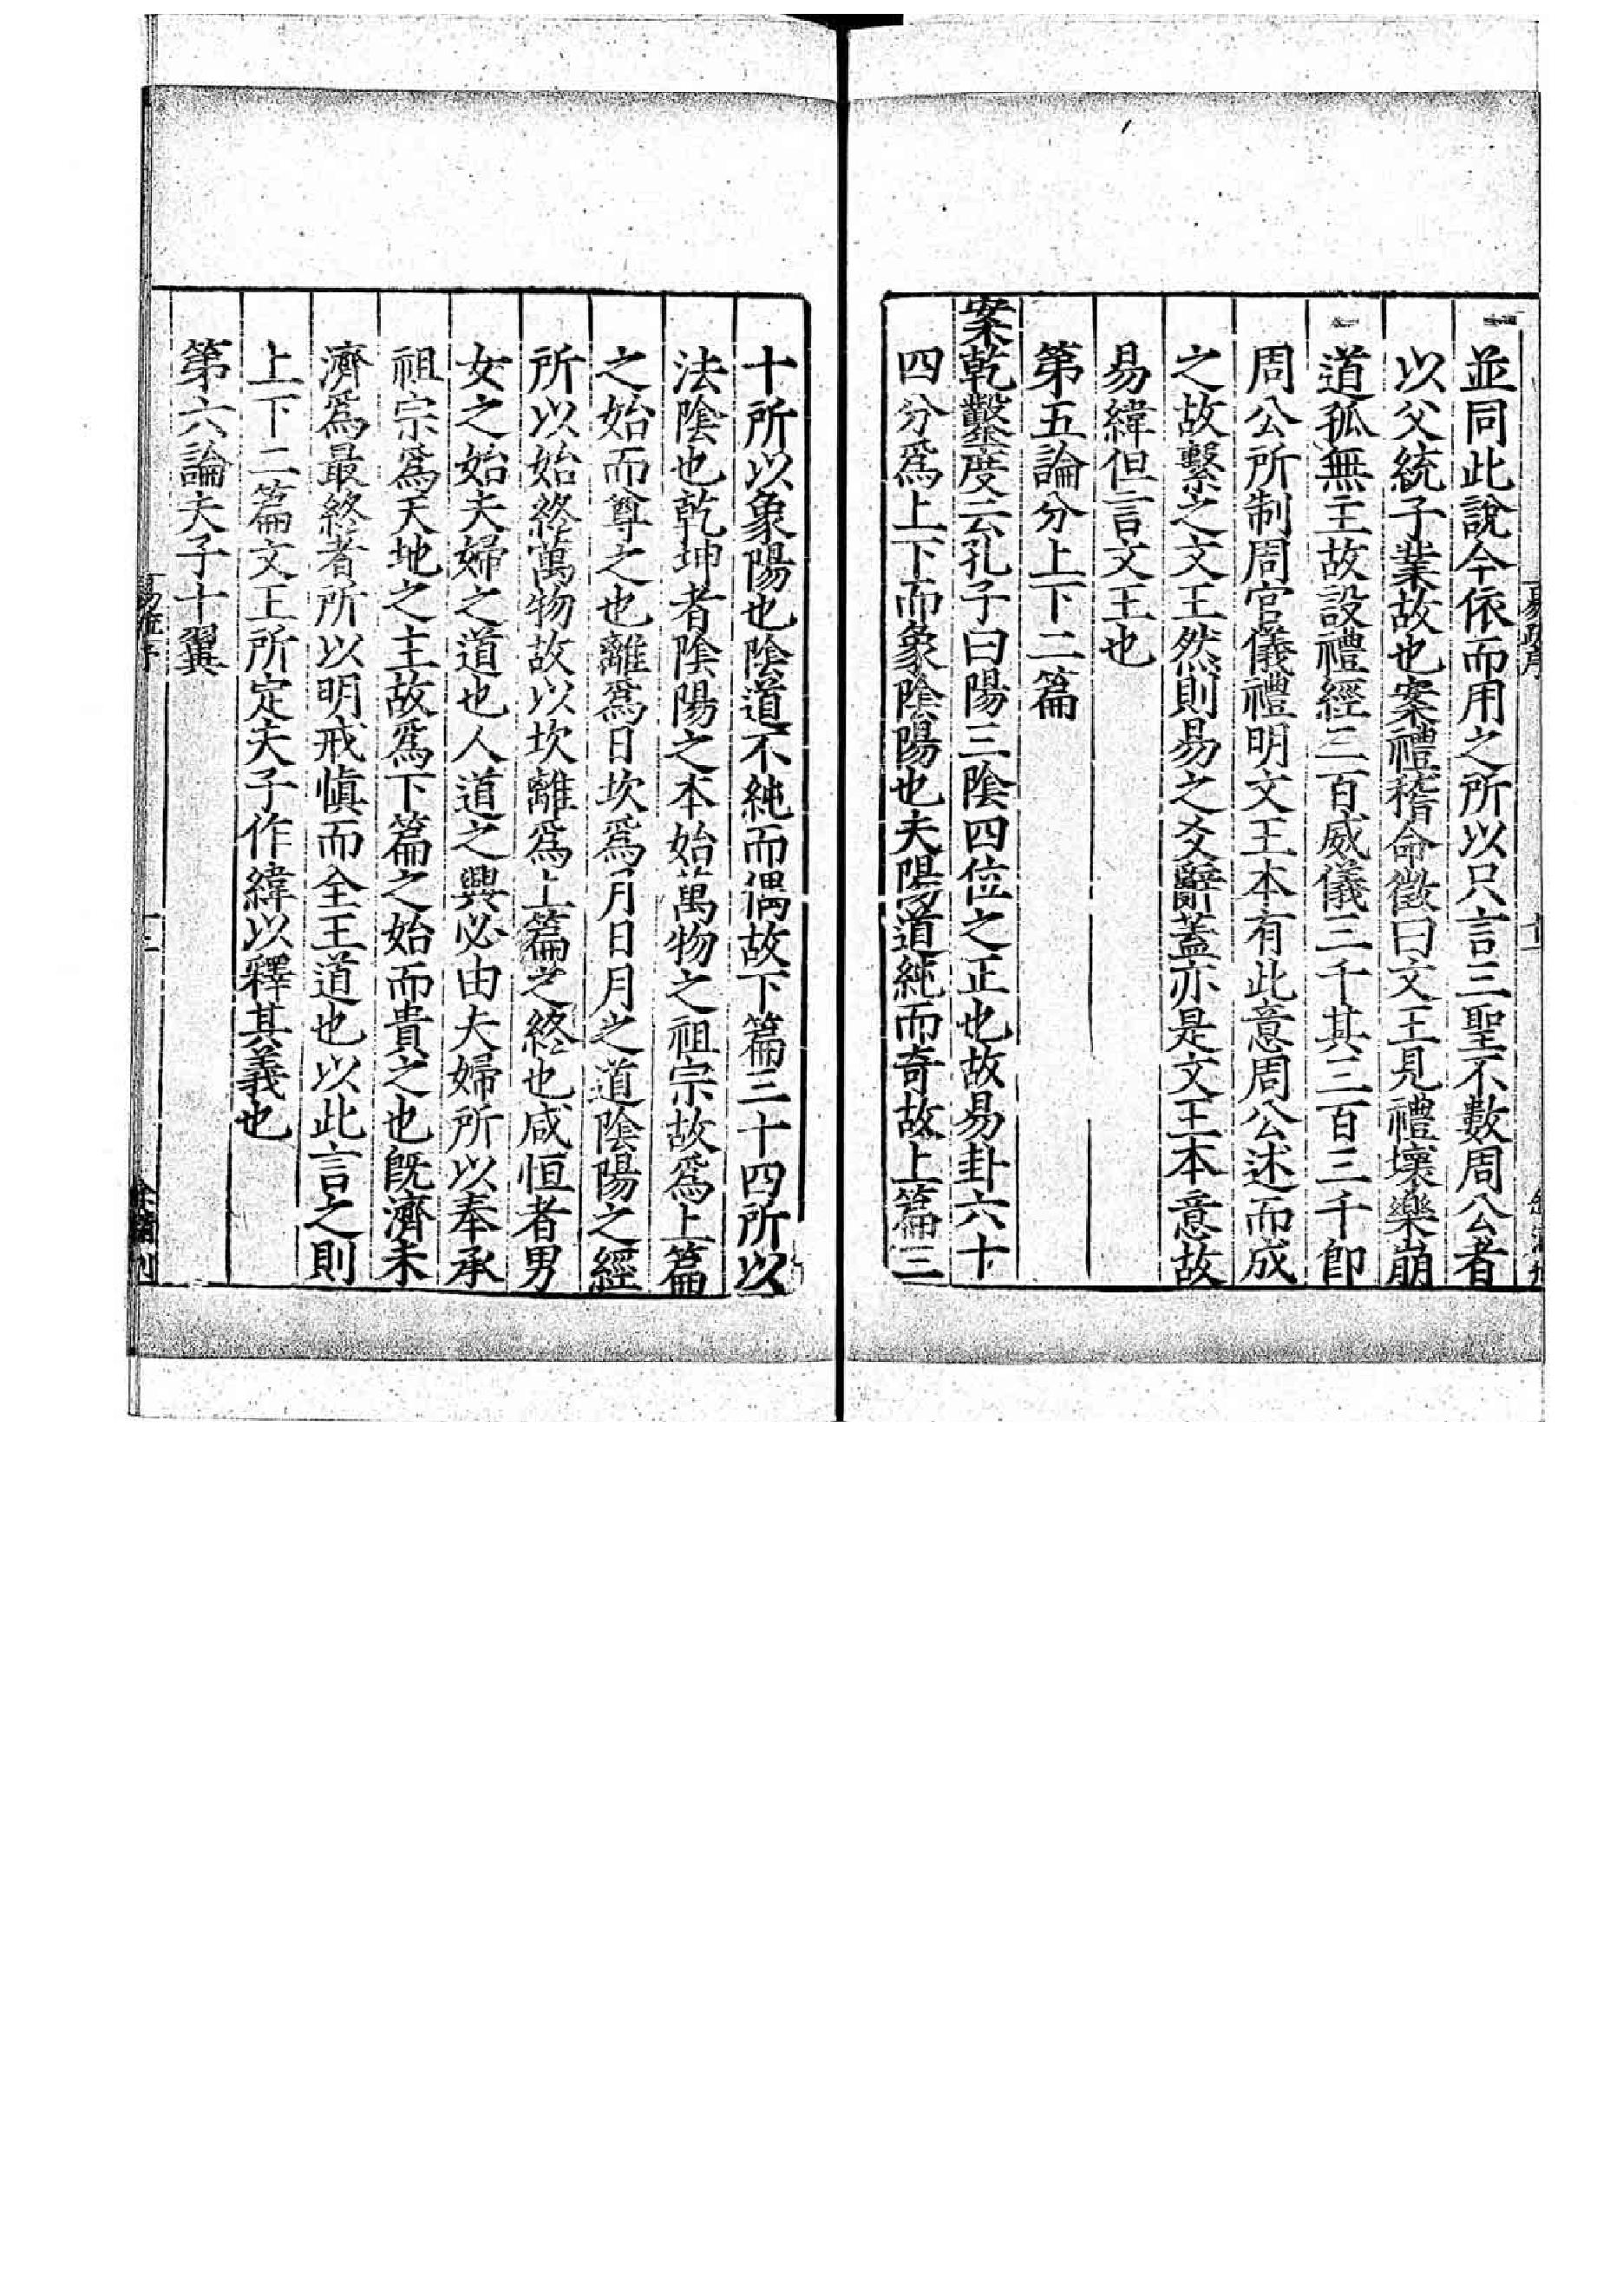 並同此說今依而用之所以只言三聖不數周公者
以父統子業故也案禮稽命徵曰文王見禮壞樂崩
道孤無主故設禮經三百威儀三千其三百三千即
周公所制周官儀禮明文王本有此意周公述而成
之故繫之文王然則易之爻辭蓋亦是文王本意故
易緯但言文王也
第五論分上下二篇
案乾鑿度云孔子曰陽三陰四位之正也故易卦六十
四分爲上下而象陰陽也夫陽道純而奇故上篇三
十所以象陽也陰道不純而偶故下篇三十四所以
法陰也乾坤者陰陽之本始萬物之祖宗故爲上篇
之始而尊之也離爲日坎爲月日月之道陰陽之經
所以始終萬物故以坎離爲上篇之終也咸恒者男
女之始夫婦之道也人道之興必由夫婦所以奉承
祖宗爲天地之主故爲下篇之始而貴之也旣濟未
濟爲最終者所以明戒愼而全王道也以此言之則
上下二篇文王所定夫子作緯以釋其義也
第六論夫子十翼